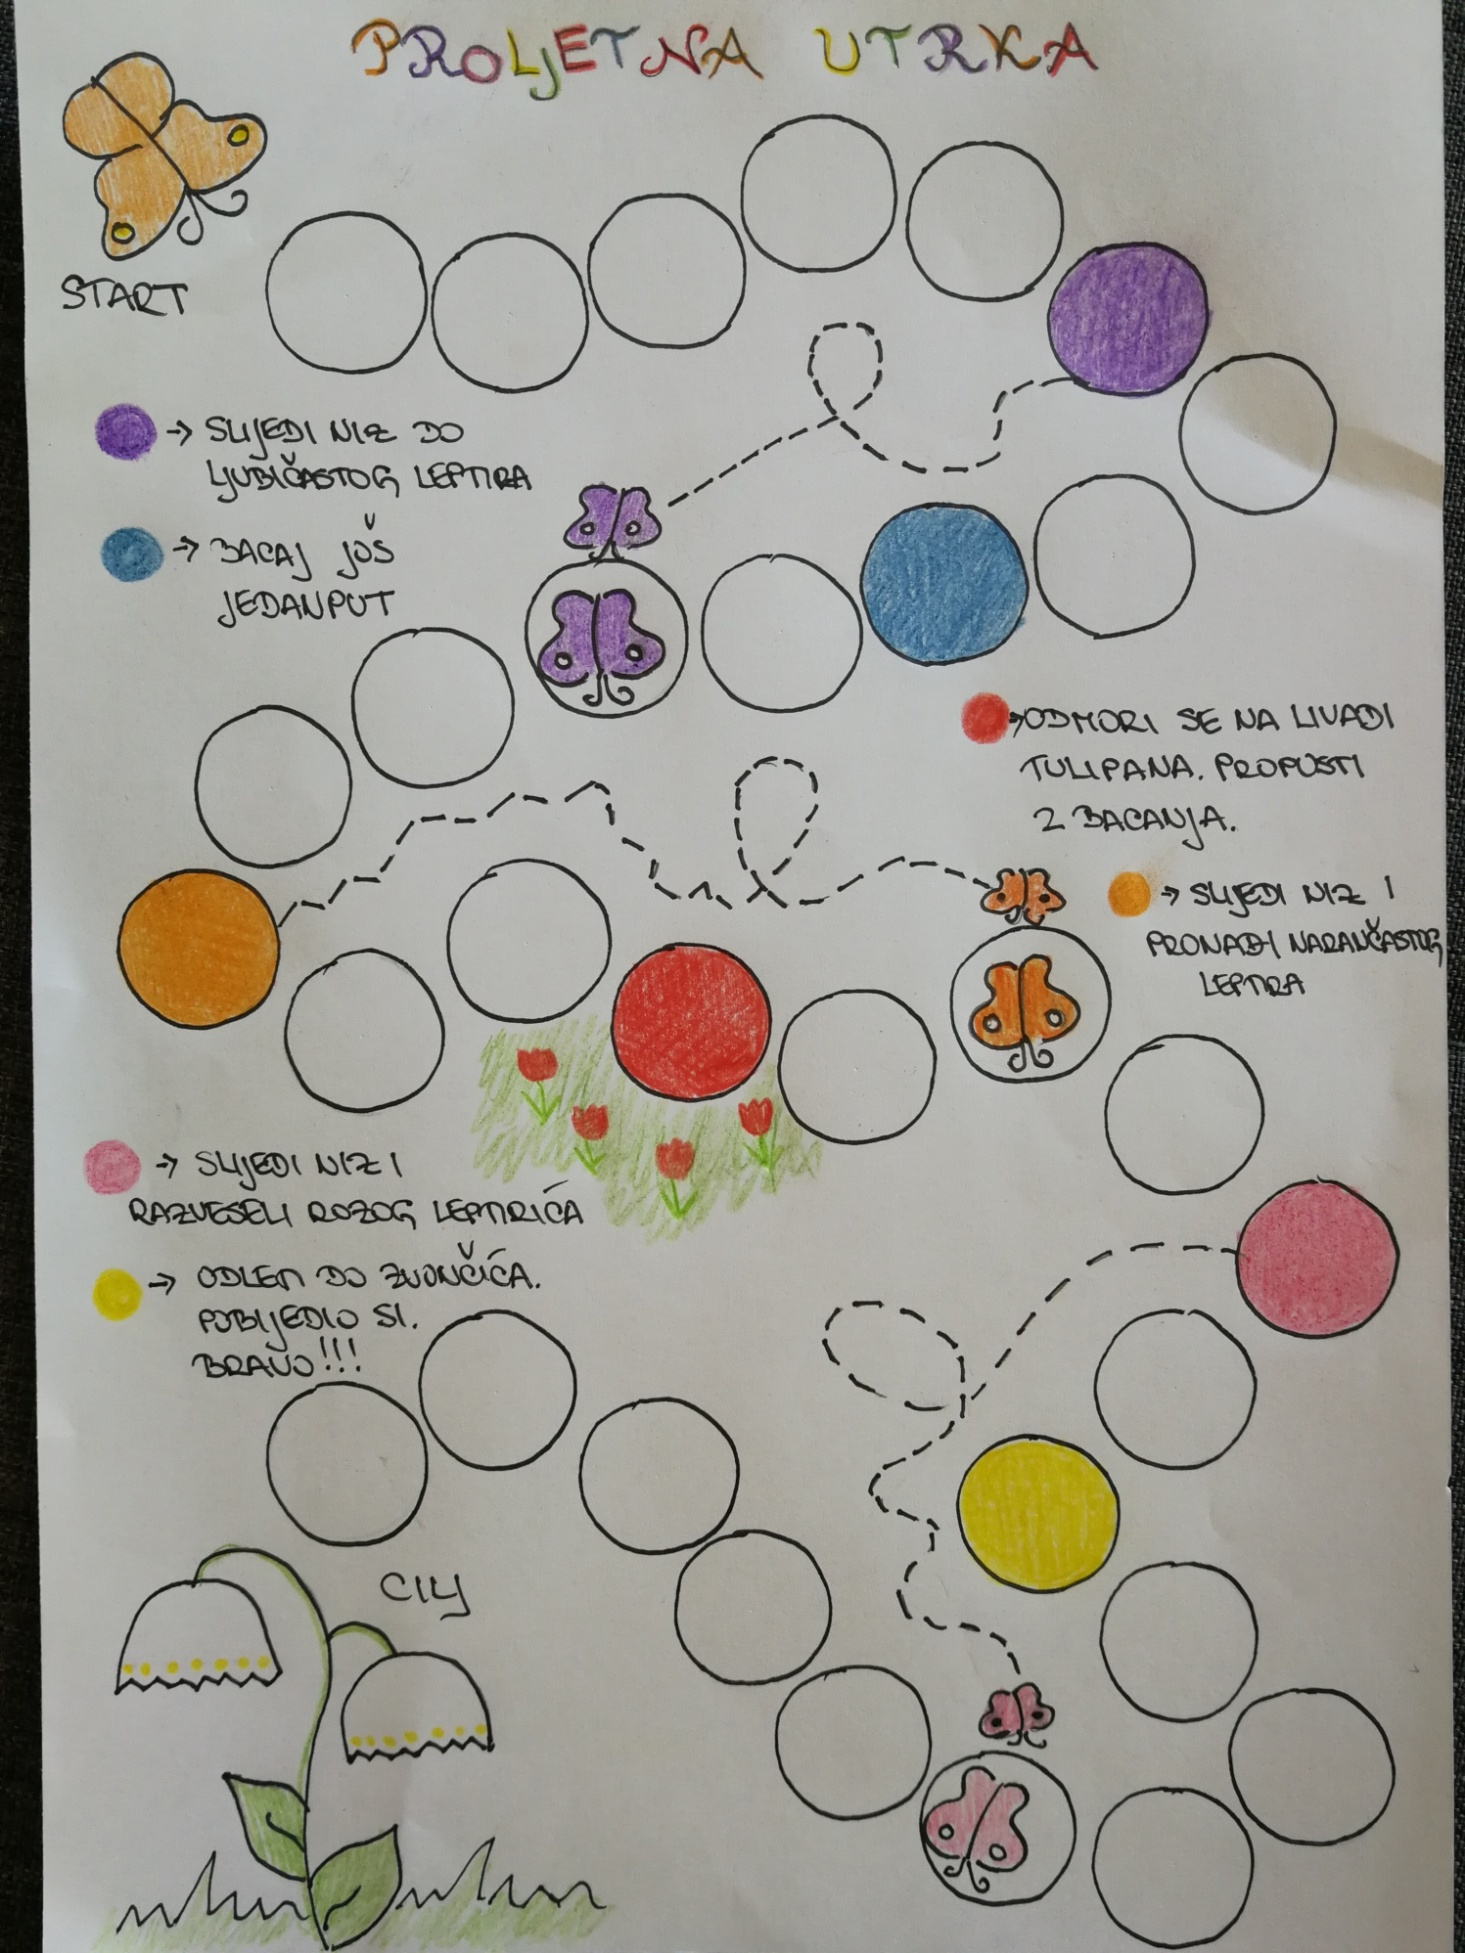 PROLJETNA UTRKA
START
SLIJEDI NIZ DO
LJUBIČASTOG LEPTIRA
BACAJ JOŠ
JEDANPUT
ODMORI SE NA LIVADI
TULIPANA. PROPUSTI
2 BACANJA.
SLIJEDI NIZ I
PRONAĐI NARANČASTOG
LEPTIRA
SLIJEDI NIZ I
RAZVESELI ROZOG LEPTIRIĆA
ODLETI DO ZVONČIĆA.
POBIJEDIO SI.
BRAVO!!!
CILJ